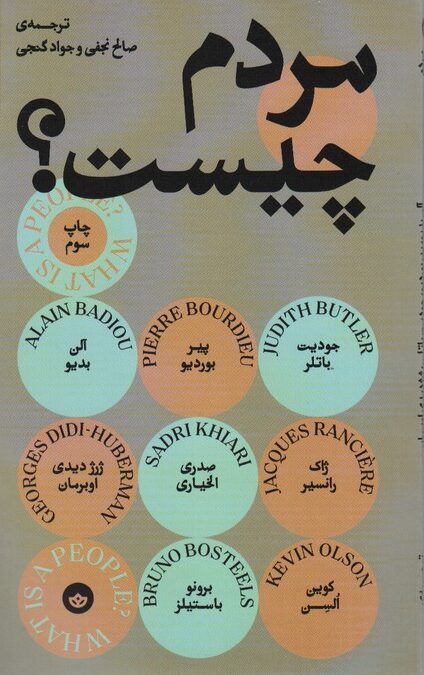 ترجمه‌ی
صالح نجفی و جواد گنجی
مردم
چیست؟
WHAT IS A PEOPLE?
چاپ
سوم
JUDITH BUTLER
جودیت
باتلر
PIERRE BOURDIEU
پیر
بوردیو
ALAIN BADIOU
آلن
بدیو
JACQUES RANCIÈRE
ژاک
رانسیر
SADRI KHIARI
صدری
الخیاری
GEORGES DIDI-HUBERMAN
ژرژ دیدی
اوبرمان
KEVIN OLSON
کوین
اُلسِن
BRUNO BOSTEELS
برونو
باستیلز
WHAT IS A PEOPLE?